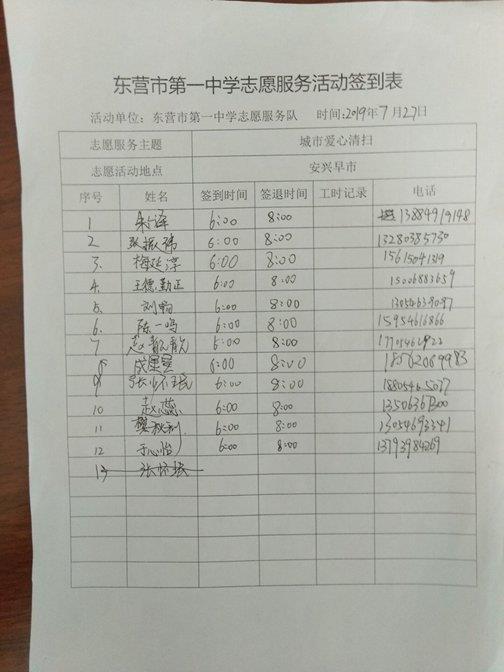 东营市第一中学志愿服务活动签到表
活动单位：东营市第一中学志愿服务队 时间:2019年7月27日
志愿服务主题 城市爱心清扫
志愿活动地点 安兴早市
序号 姓名 签到时间 签退时间 工时记录 电话
1 6:00 8:00 13884919148
2 张振 6:00 8:00 13280385730
3. 梅延淳 6:00 8:00 15615041319
4. 王德勤正 6:00 8:00 15006883659
5. 刘畅 6:00 8:00
6. 陈一鸣 6:00 8:00 15954616866
7 赵歆歆 6:00 8:00
8 成星星 6:00 8:00
9 张怀珉 6:00 8:00 18805465077
10 赵蕊 6:00 8:00
11 6:00 8:00 13054693341
12 于心怡 6:00 8:00 13793984269
13 张怀珉